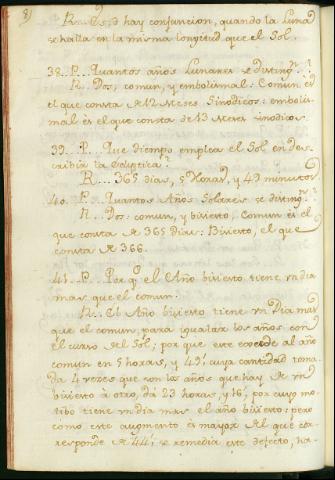 8)
R. Es, o hay conjuncion, quando la Luna
se halla en la misma longitud que el Sol.
38. P. Quantos años Lunares se disting.n?
R. Dos; comun, y embolismal: Comun es
el que consta de 12 Meses Sinodicos: embolis-
mal es el que consta de 13 Meses sinodicos.
39. P. Que tiempo emplea el Sol en des-
cribir la Ecliptica?
R. 365 dias, 5 Horas, y 49 minutos
40. P. Quantos Años Solares se disting.n?
R. Dos: comun, y bisiesto. Comun es el
que consta de 365 Dias: Bisiesto, el que
consta de 366.
41. P. Por q.e el Año bisiesto tiene un dia
mas que el comun.
R. El Año bisiesto tiene un Dia mas
que el comun, para igualar los años con
el curso del Sol; por que este excede al año
comun en 5 horas, y 49', cuya cantidad toma-
da 4 veces que son los años que hay de un
bisiesto à otro, dà 23 horas, y 16', por cuyo mo-
tibo tiene un dia mas el año bisiesto: pero
como este augmento es mayor del que cor-
responde de 44', se remedia este defecto, ha-